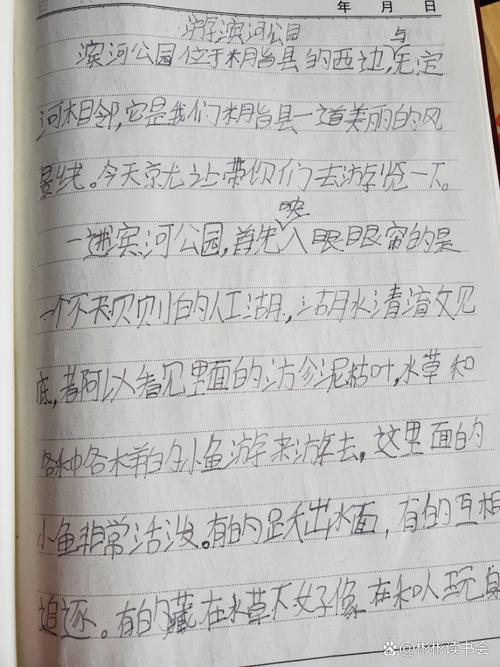 年 月 日
游滨河公园
滨河公园位于米脂县的西边,与无定
河相邻,它是我们米脂县一道美丽的风
景线。今天就让带你们去游览一下。
一进滨河公园,首先映入眼眼帘的是
一个不规则的人工湖,湖水清澈见
底,都可以看见里面的淤泥枯叶,水草和
各种各样的小鱼游来游去,这里面的
小鱼非常活泼。有的跃出水面,有的互相
追逐。有的藏在水草下好像在和人玩
@彬彬读书会